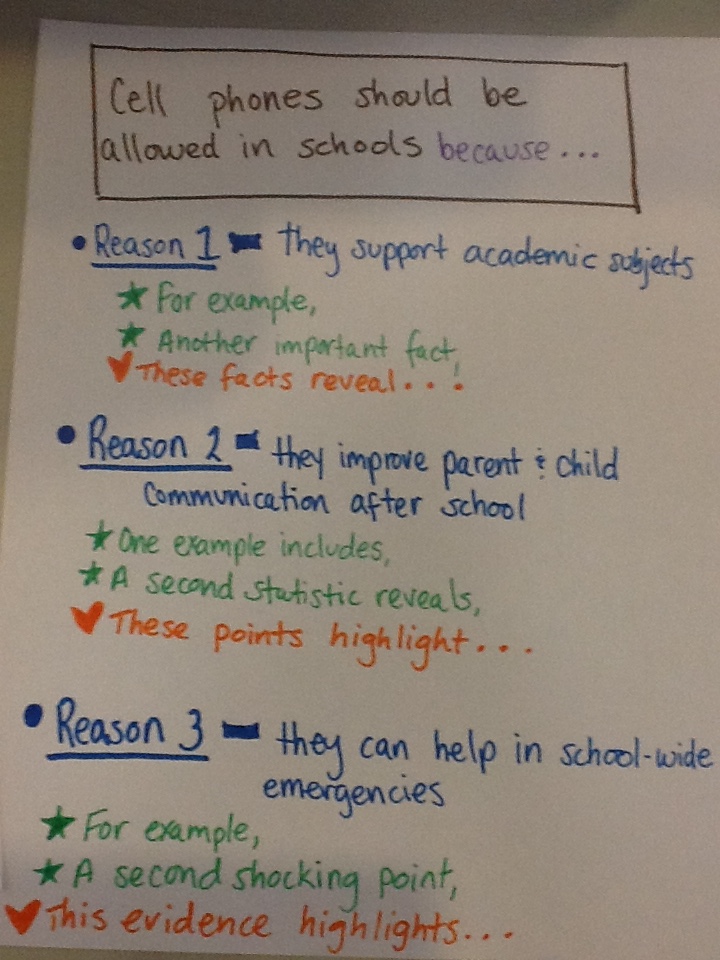 Cell phones should be
allowed in schools because...
• Reason 1 - they support academic subjects
★ For example,
★ Another important fact,
♥ These facts reveal...
• Reason 2 - they improve parent & child
communication after school
★ One example includes,
★ A second statistic reveals,
♥ These points highlight...
• Reason 3 - they can help in school-wide
emergencies
★ For example,
★ A second shocking point,
♥ This evidence highlights...